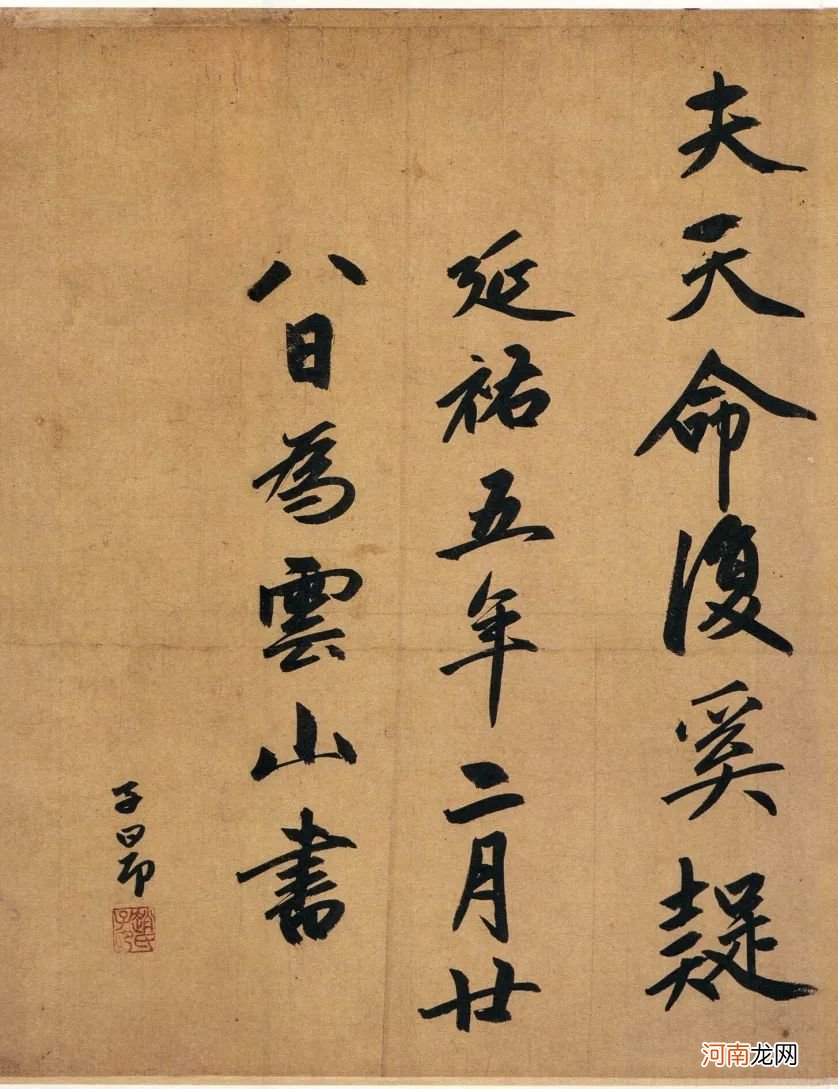 夫天命復奚疑
延祐五年二月廿
八日為雲山書
子昂
趙氏子昂
河南龙网